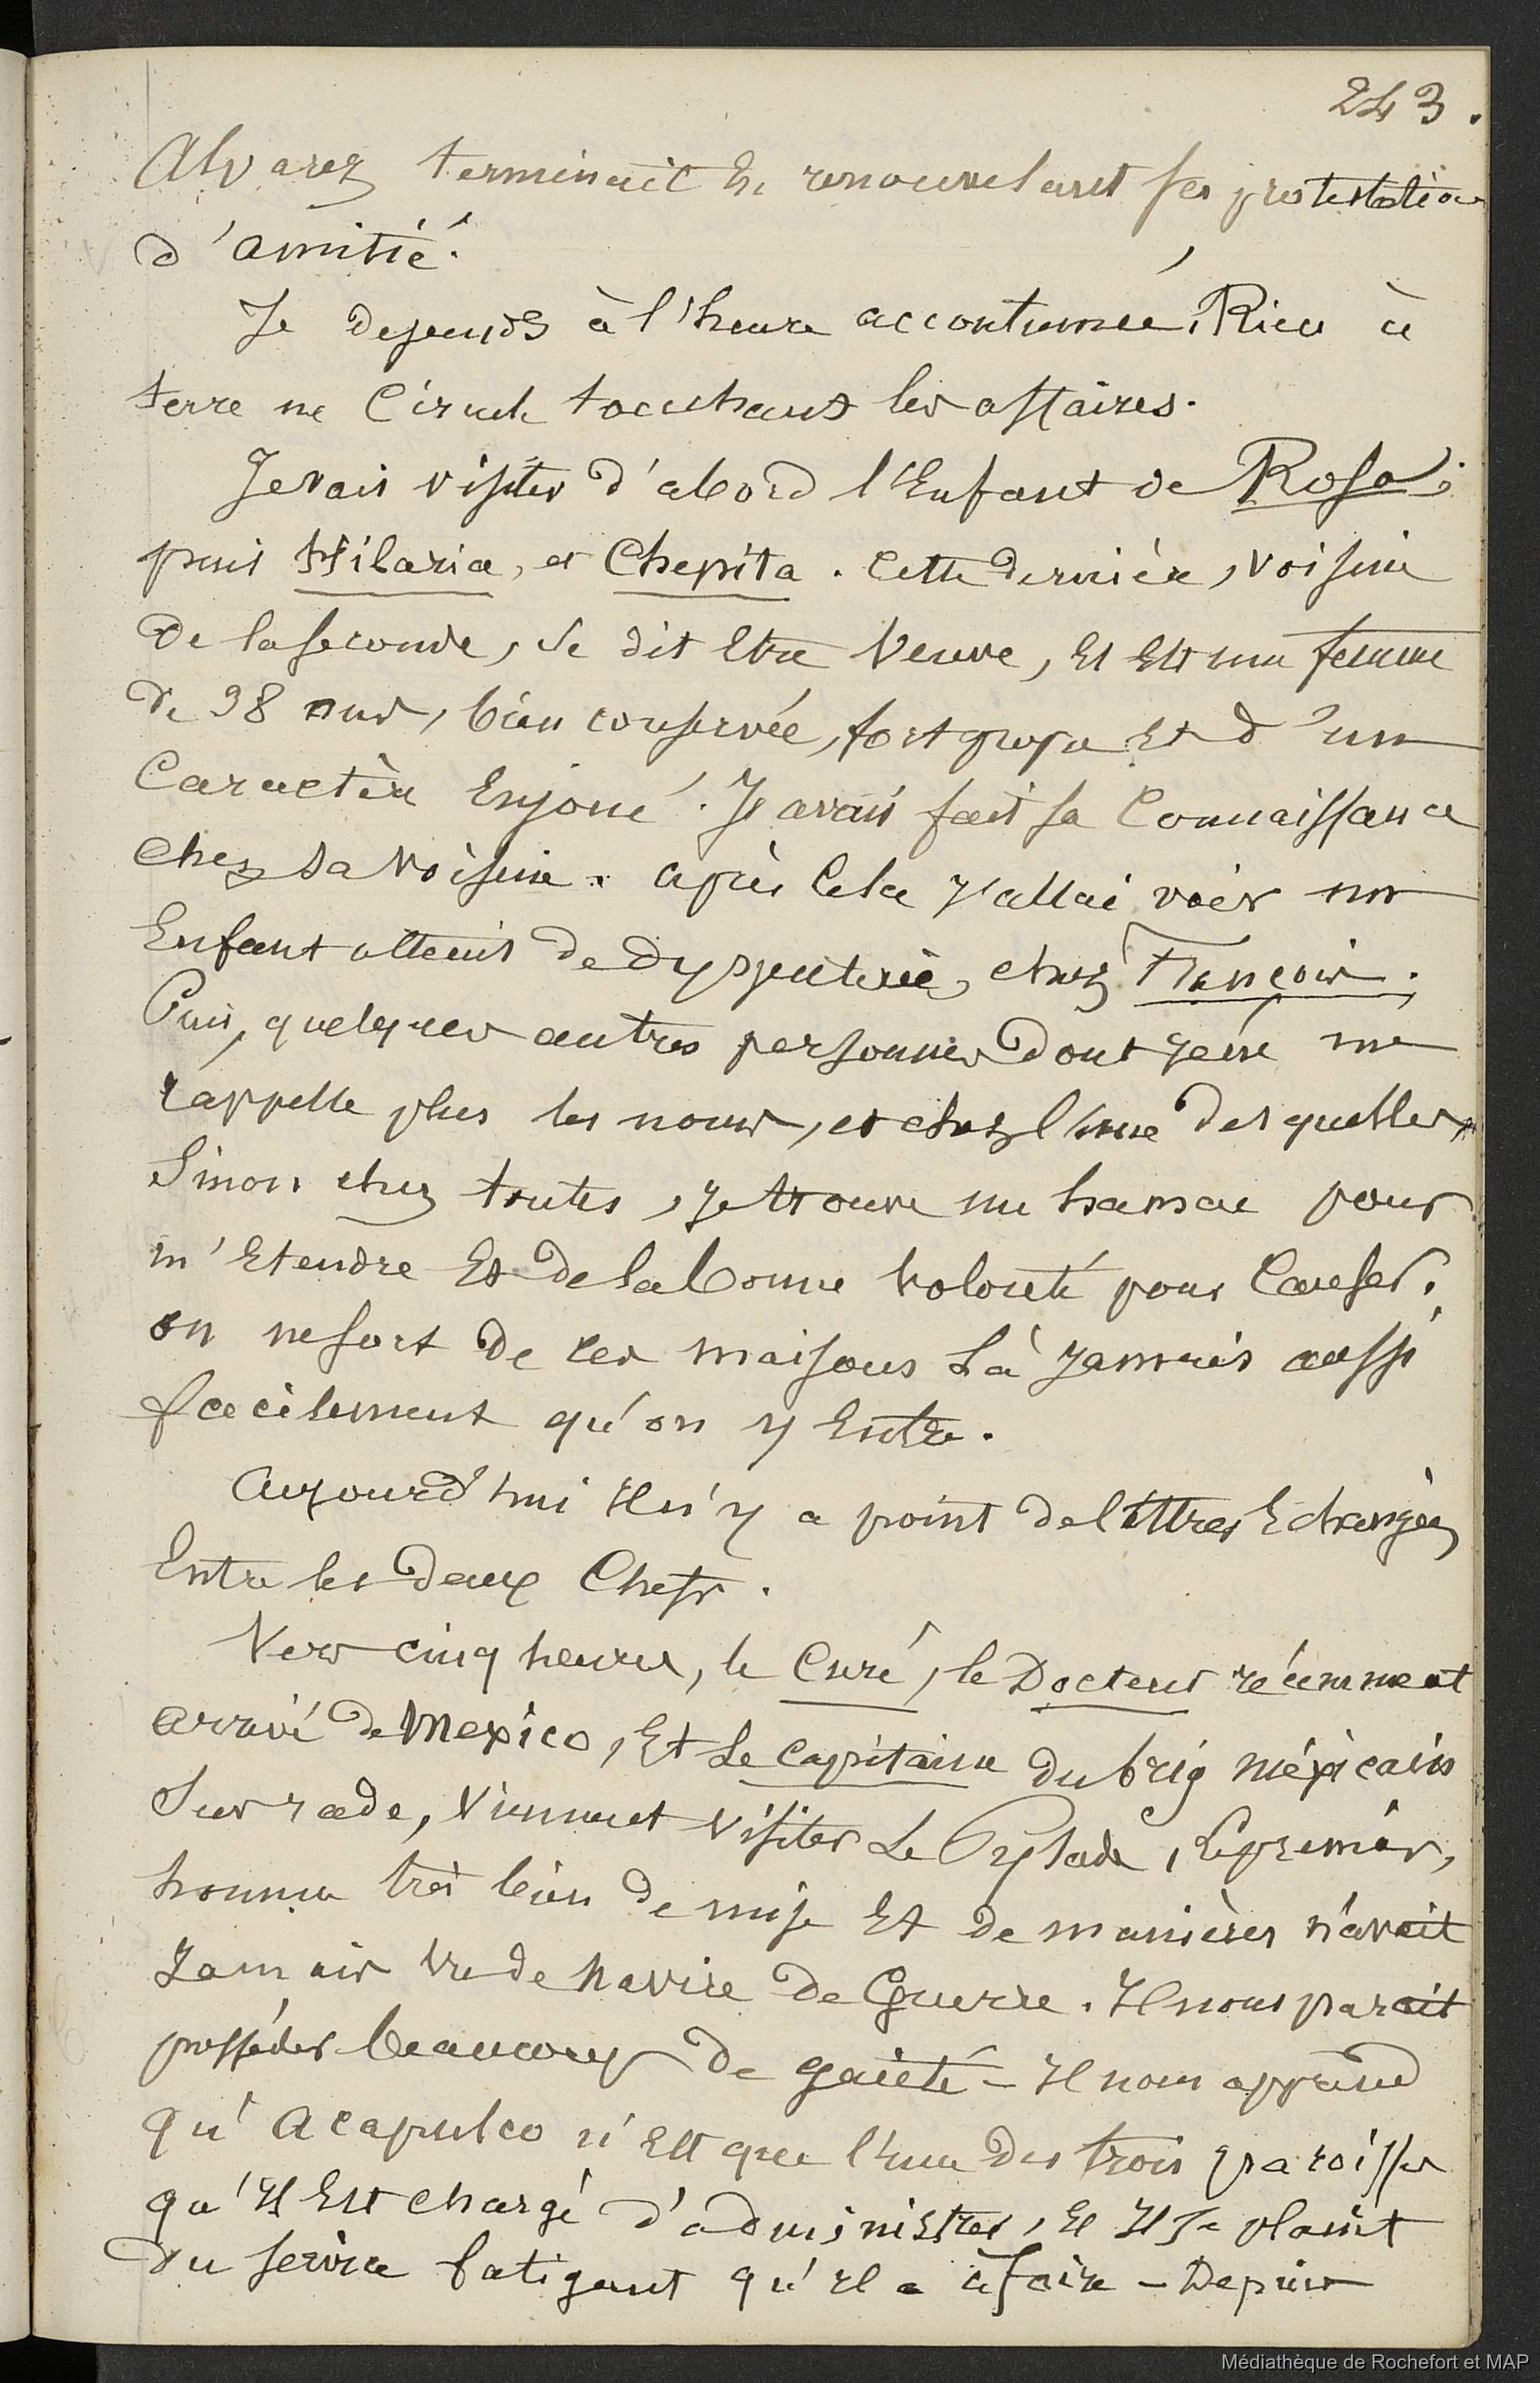 243.
Alvarez terminait en renouvelant ses protestations
d'amitié.
Je descends à l'heure accoutumée, Rien à
terre ne circule touchant les affaires.
Je vais visiter d'abord l'Enfant de Rosa;
puis Hilaria, et Chepita. Cette dernière, voisine
de la seconde, se dit être veuve, et est une femme
de 38 ans, bien conservée, fort propre et d'un
caractère enjoué. J'avais fait sa connaissance
chez sa voisine. après cela j'allai voir un
Enfant atteint de dyssenterie, chez François.
Puis, quelques autres personnes dont je ne me
rappelle plus les noms, et chez l'une des quelles,
sinon chez toutes, je trouve un hamac pour
m'étendre et de la bonne volonté pour causer.
on ne sort de ces maisons là jamais aussi
facilement qu'on y entre.
Aujourd'hui il n'y a point de lettres échangées
Entre les deux Chefs.
Vers cinq heures, le Curé, le Docteur récemment
arrivé de Mexico, Et Le Capitaine du brig méxicain
sur rade, viennent visiter Le Pylade, Le premier,
homme très bien de mise Et de manières n'avait
jamais vu de navire de Guerre. Il nous parait
posséder beaucoup de gaieté – Il nous apprend
qu'Acapulco n'est que l'une des trois paroisses
qu'il Est chargé d'administrer, et Il se plaint
du service fatigant qu'il a à faire – Depuis
Médiathèque de Rochefort et MAP